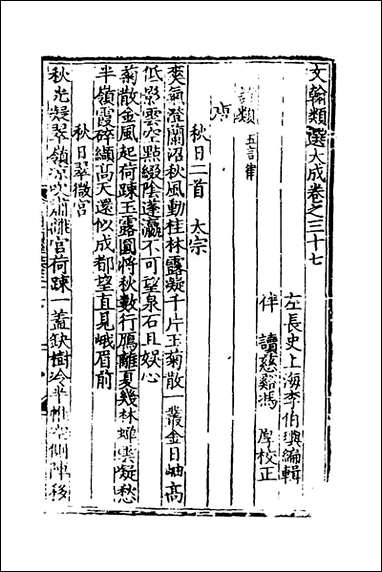 文翰類選大成卷之三十七
左長史上海李伯璵編輯
伴讀慈谿馮厚校正
詩類 五言律
秋日二首 太宗
爽氣澄蘭沼秋風動桂林露凝千片玉菊散一叢金日岫高
低影雲空點綴陰蓬瀛不可望泉石且娛心
菊散金風起荷踈玉露圓將秋數行鴈離夏幾林蟬雲凝愁
半嶺霞碎纈高天還似成都望直見峨眉前
秋日翠微宮
秋光凝翠嶺涼吹肅離宮荷踈一蓋缺樹冷半帷空側陣移